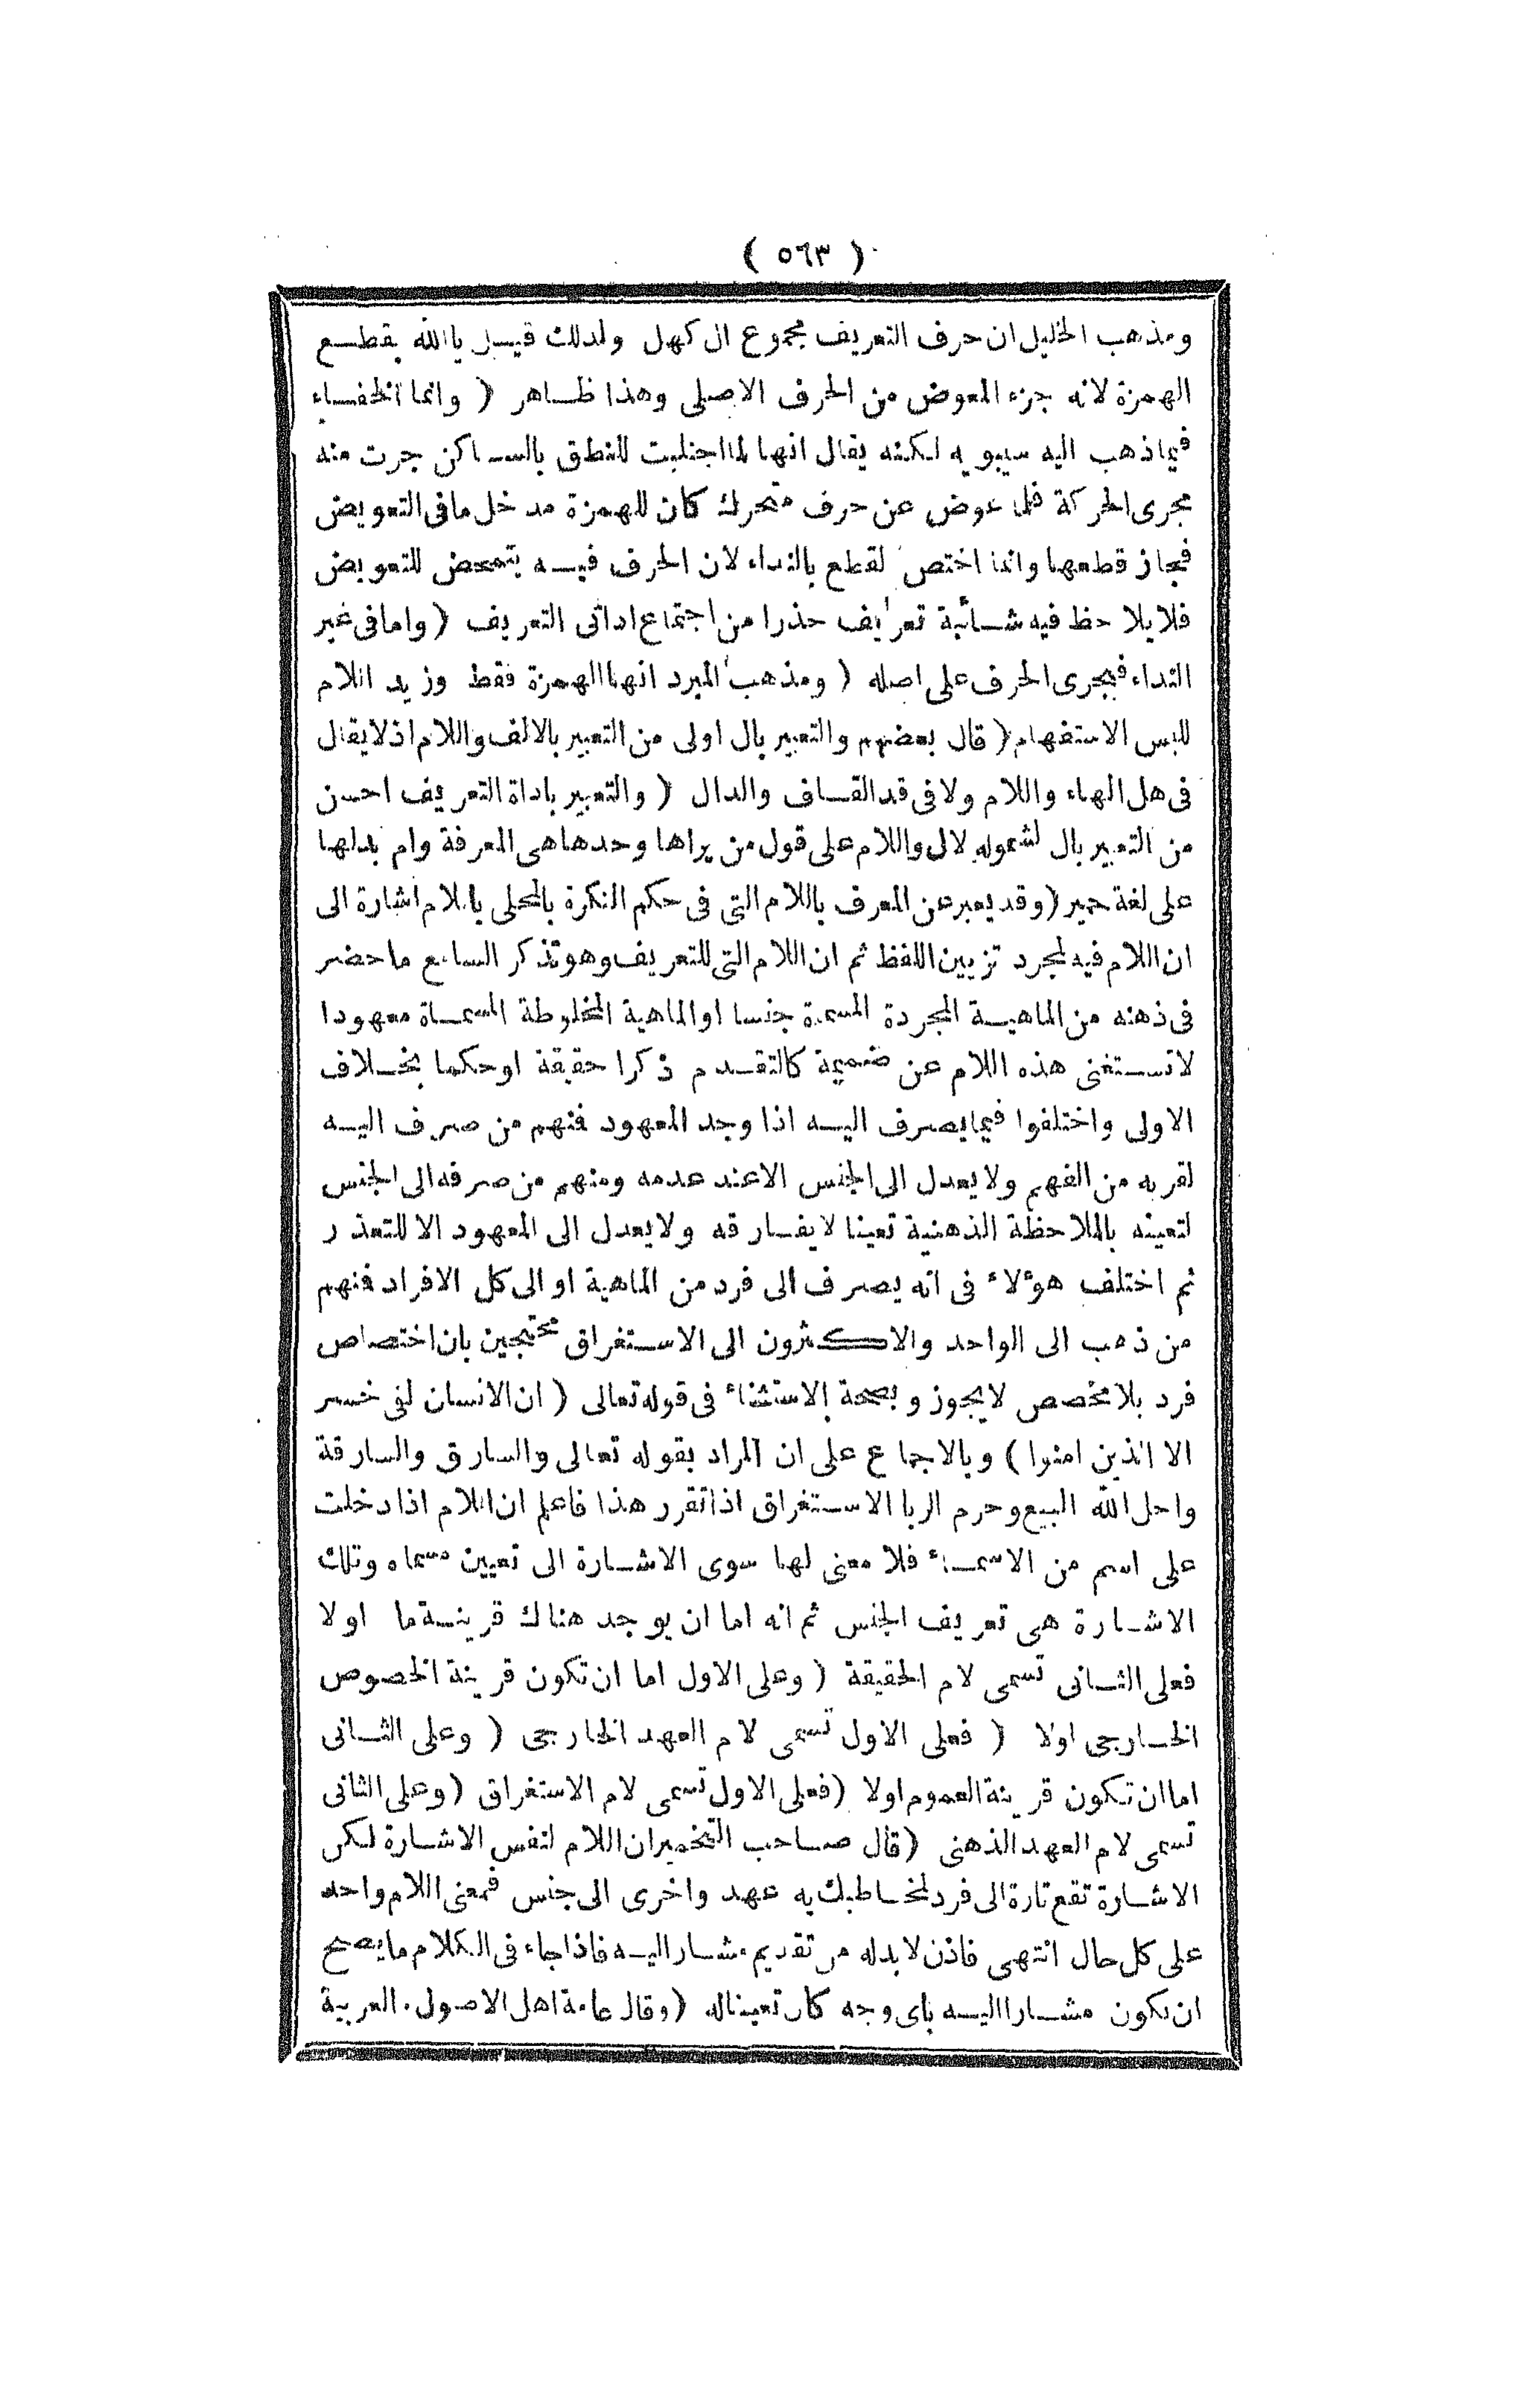 ( ٥٦٣ )
ومذهب الخليل ان حرف التعريف مجموع ال كهل ولذلك قيل يا الله بقطع
الهمزة لانه جزء المعوض من الحرف الاصلى وهذا ظاهر ( وانما الخفاء
فيما ذهب اليه سيبويه لكنه يقال انها لما اجتلبت للنطق بالساكن جرت منه
مجرى الحركة فلما عوض عن حرف متحرك كان للهمزة مدخل ما فى التعويض
فجاز قطعها وانما اختص لقطع بالنداء لان الحرف فيه يتمحض للتعويض
فلا يلاحظ فيه شائبة تعريف حذرا من اجتماع اداتى التعريف ( واما فى غير
النداء فيجرى الحرف على اصله ( ومذهب المبرد انها الهمزة فقط وزيد اللام
للبس الاستفهام ( قال بعضهم والتعبير بال اولى من التعبير بالالف واللام اذ لا يقال
فى هل الهاء واللام ولا فى قد القاف والدال ( والتعبير باداة التعريف احسن
من التعبير بال لشموله لال واللام على قول من يراها وحدها هى المعرفة وام بدلها
على لغة حمير ( وقد يعبر عن المعرف باللام التى فى حكم النكرة بالمحلى باللام اشارة الى
ان اللام فيه لمجرد تزيين اللفظ ثم ان اللام التى للتعريف وهو تذكر السامع ما حضر
فى ذهنه من الماهية المجردة المسماة جنسا او الماهية المخلوطة المسماة معهودا
لا تستغنى هذه اللام عن ضميمة كالتقدم ذكرا حقيقة او حكما بخلاف
الاولى واختلفوا فيما يصرف اليه اذا وجد المعهود فنهم من صرف اليه
لقربه من الفهم ولا يعدل الى الجنس الا عند عدمه ومنهم من صرفه الى الجنس
لتعينه بالملاحظة الذهنية تعينا لا يفارقه ولا يعدل الى المعهود الا للتعذر
ثم اختلف هؤلاء فى انه يصرف الى فرد من الماهية او الى كل الافراد فنهم
من ذهب الى الواحد والاكثرون الى الاستغراق محتجين بان اختصاص
فرد بلا مخصص لا يجوز وبصحة الاستثناء فى قوله تعالى ( ان الانسان لفى خسر
الا الذين امنوا ) وبالاجماع على ان المراد بقوله تعالى والسارق والسارقة
واحل الله البيع وحرم الربا الاستغراق اذا تقرر هذا فاعلم ان اللام اذا دخلت
على اسم من الاسماء فلا معنى لها سوى الاشارة الى تعيين مسماه وتلك
الاشارة هى تعريف الجنس ثم انه اما ان يوجد هناك قرينة ما اولا
فعلى الثانى تسمى لام الحقيقة ( وعلى الاول اما ان تكون قرينة الخصوص
الخارجى اولا ( فعلى الاول تسمى لام العهد الخارجى ( وعلى الثانى
اما ان تكون قرينة العموم اولا ( فعلى الاول تسمى لام الاستغراق ( وعلى الثانى
تسمى لام العهد الذهنى ( قال صاحب التخمير ان اللام لنفس الاشارة لكن
الاشارة تقع تارة الى فرد لمخاطبك به عهد واخرى الى جنس فمعنى اللام واحد
على كل حال انتهى فاذن لا بد له من تقديم مشار اليه فاذا جاء فى الكلام ما يصح
ان يكون مشارا اليه باى وجه كان تعينا له ( وقال عامة اهل الاصول . العربية